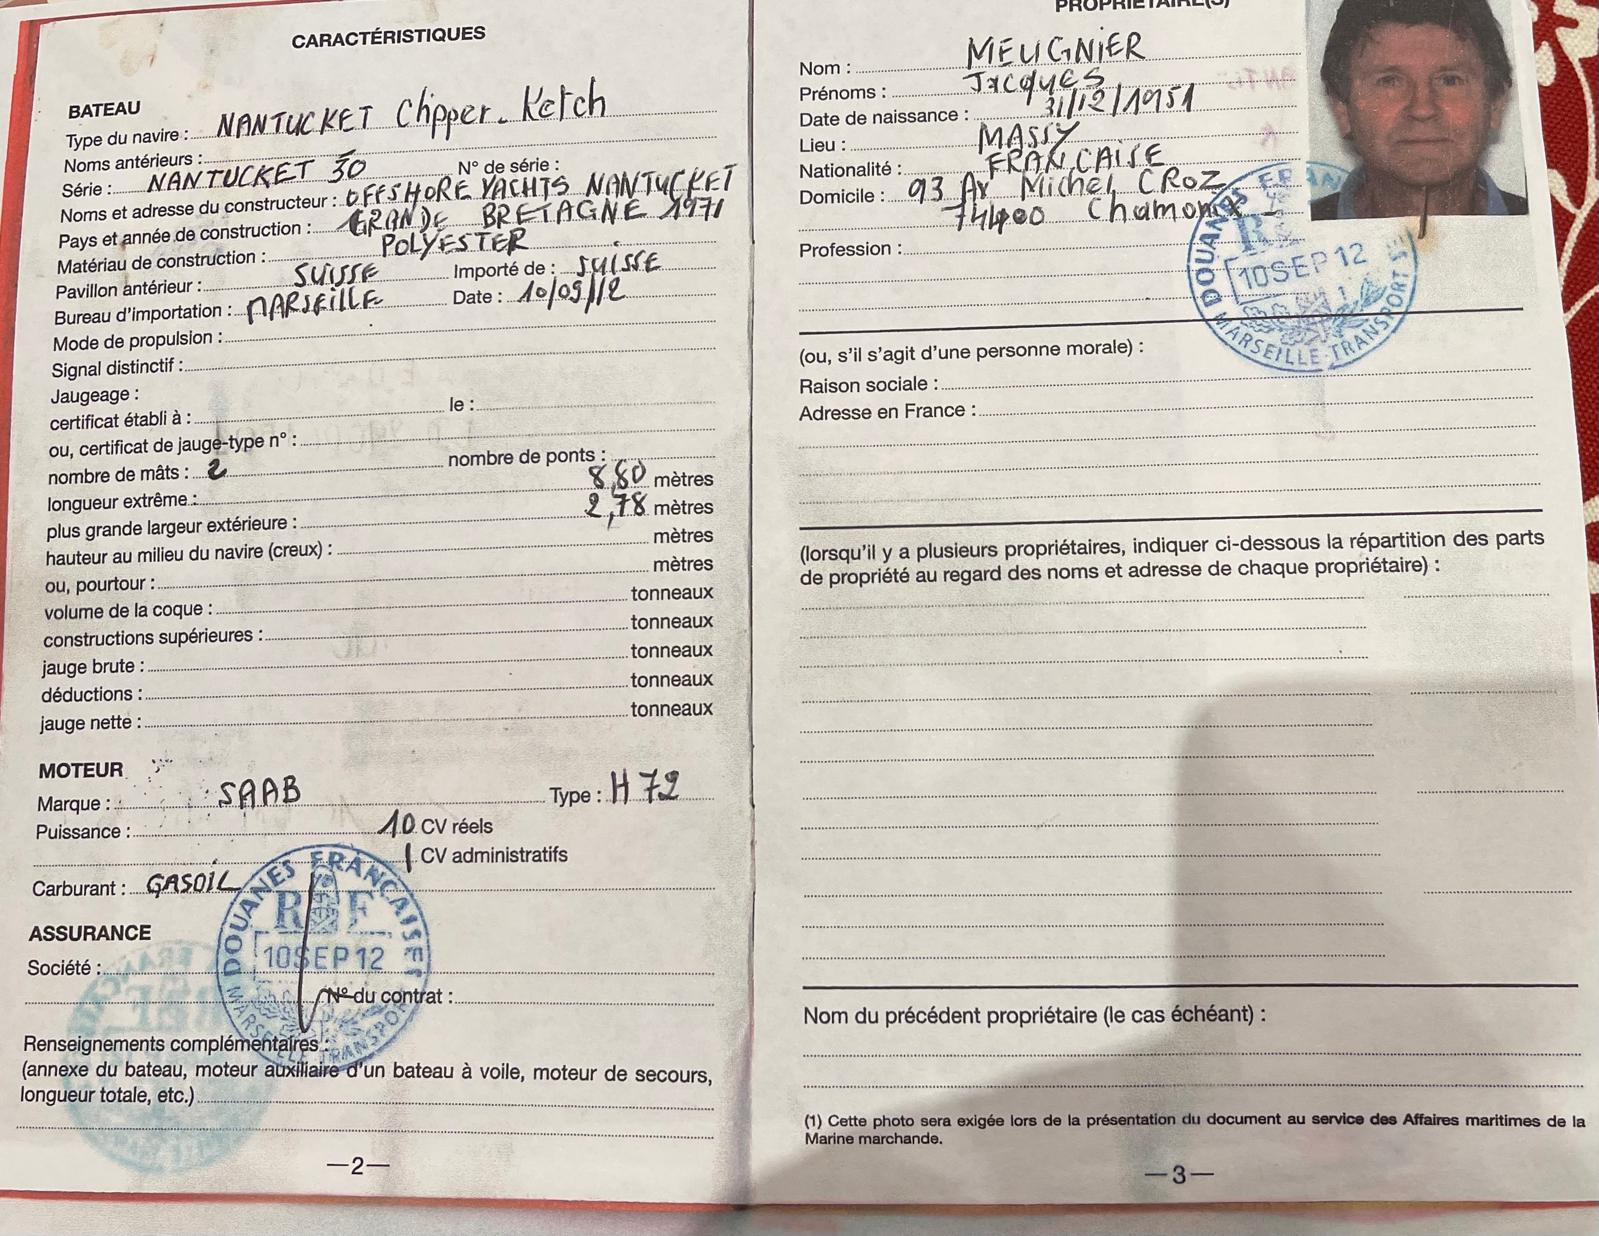 CARACTÉRISTIQUES
BATEAU
Type du navire : NANTUCKET Clipper. Ketch
Noms antérieurs :
Série : NANTUCKET 30 N° de série :
Noms et adresse du constructeur : OFFSHORE YACHTS NANTUCKET
Pays et année de construction : GRANDE BRETAGNE 1971
Matériau de construction : POLYESTER
Pavillon antérieur : SUISSE Importé de : SUISSE
Bureau d'importation : MARSEILLE Date : 10/09/12
Mode de propulsion :
Signal distinctif :
Jaugeage :
certificat établi à : le :
ou, certificat de jauge-type n° :
nombre de mâts : 2 nombre de ponts :
longueur extrême : 8,80 mètres
plus grande largeur extérieure : 2,78 mètres
hauteur au milieu du navire (creux) : mètres
ou, pourtour : mètres
volume de la coque : tonneaux
constructions supérieures : tonneaux
jauge brute : tonneaux
déductions : tonneaux
jauge nette : tonneaux
MOTEUR
Marque : SAAB Type : H 72
Puissance : 10 CV réels
1 CV administratifs
Carburant : GASOIL
DOUANES FRANCAISES
R F
10 SEP 12
MARSEILLE TRANSPORT
ASSURANCE
Société :
N° du contrat :
Renseignements complémentaires :
(annexe du bateau, moteur auxiliaire d'un bateau à voile, moteur de secours,
longueur totale, etc.)
—2—
PROPRIÉTAIRE(S)
Nom : MEUGNIER
Prénoms : Jacques
Date de naissance : 31/12/1951
Lieu : MASSY
Nationalité : FRANCAISE
Domicile : 93 Av Michel CROZ
74400 Chamonix
Profession :
DOUANES FRAN
R
10 SEP 12
MARSEILLE-TRANSPORT
(ou, s'il s'agit d'une personne morale) :
Raison sociale :
Adresse en France :
(lorsqu'il y a plusieurs propriétaires, indiquer ci-dessous la répartition des parts
de propriété au regard des noms et adresse de chaque propriétaire) :
Nom du précédent propriétaire (le cas échéant) :
(1) Cette photo sera exigée lors de la présentation du document au service des Affaires maritimes de la
Marine marchande.
—3—